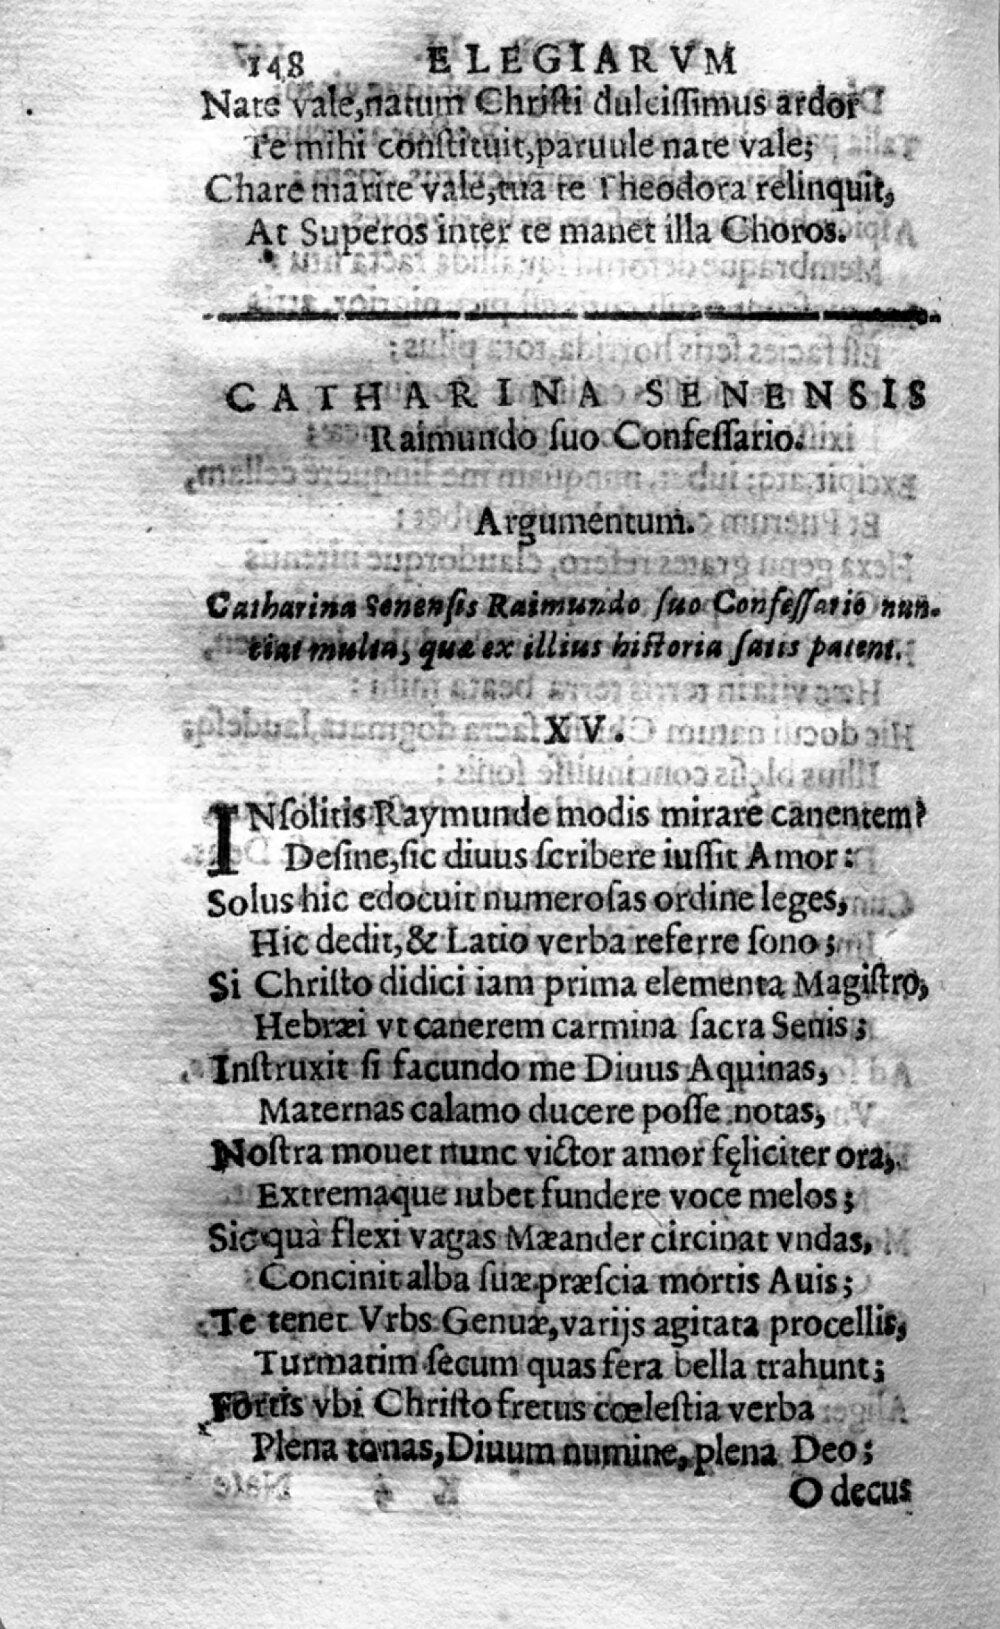 148 ELEGIARVM
Nate vale, natum Chriſti dulciſſimus ardor
Te mihi conſtituit, paruule nate vale;
Chare marite vale, tua te Theodora relinquit,
At Superos inter te manet illa Choros.
CATHARINA SENENSIS
Raimundo ſuo Confeſſario.
Argumentum.
Catharina Senenſis Raimundo ſuo Confeſſario nun-
tiat multa, quæ ex illius hiſtoria ſatis patent.
XV.
INſolitis Raymunde modis mirare canentem?
Deſine, ſic diuus ſcribere iuſſit Amor:
Solus hic edocuit numeroſas ordine leges,
Hic dedit, & Latio verba referre ſono;
Si Chriſto didici iam prima elementa Magiſtro,
Hebræi vt canerem carmina ſacra Senis;
Inſtruxit ſi facundo me Diuus Aquinas,
Maternas calamo ducere poſſe notas,
Noſtra mouet nunc victor amor fęliciter ora,
Extremaque iubet fundere voce melos;
Sic quà flexi vagas Mæander circinat vndas,
Concinit alba ſuæ præſcia mortis Auis;
Te tenet Vrbs Genuæ, varijs agitata procellis,
Turmatim ſecum quas fera bella trahunt;
Fortis vbi Chriſto fretus cœleſtia verba
Plena tonas, Diuum numine, plena Deo;
O decus